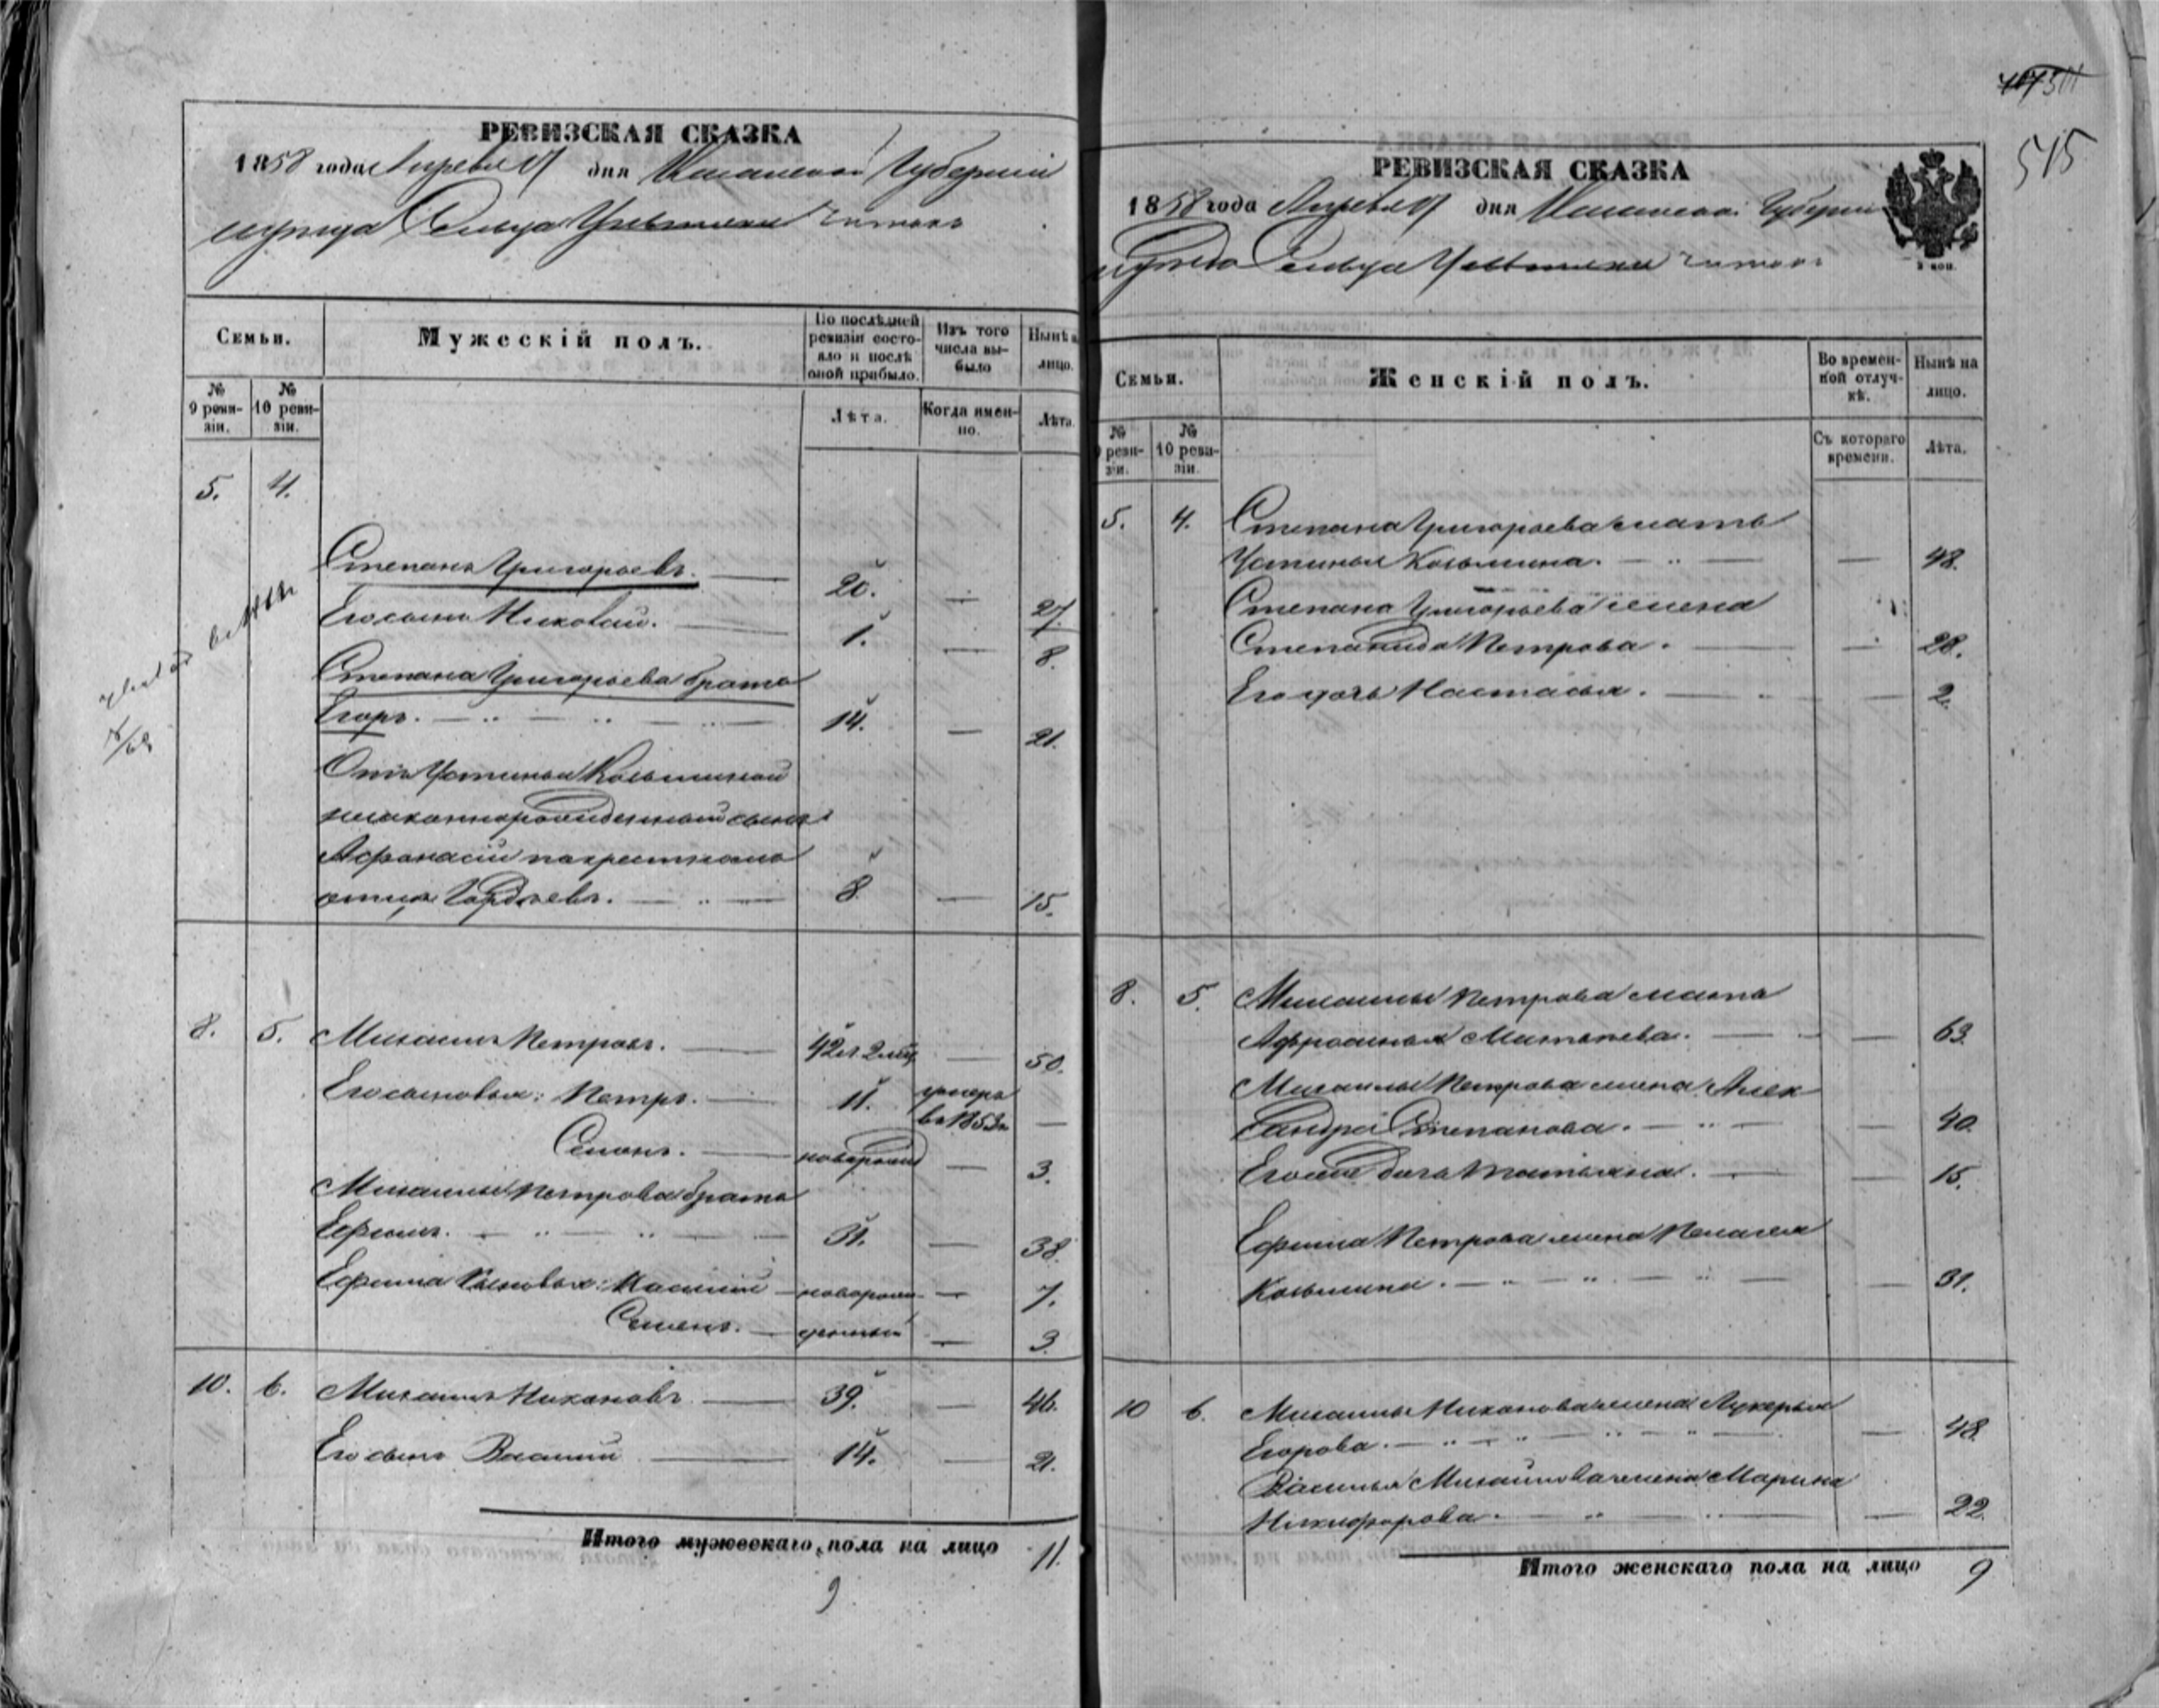 РЕВИЗСКАЯ СКАЗКА
1858 года Апреля 17 дня Казанской Губерніи
уезда Сельца
Семьи.
Мужескій полъ.
По послѣдней ревизіи состояло и послѣ оной прибыло.
Изъ того числа выбыло
Нынѣ на лицо.
№ 9 ревизіи.
№ 10 ревизіи.
Лѣта.
Когда именно.
Лѣта.
5. 4.
Степанъ Григорьевъ. 20. — 27.
Его сынъ Николай. 1. — 8.
Степана Григорьева братъ
Егоръ. 14. — 21.
Отъ Устиньи Козьминой
незаконнорожденный сынъ
Афонасий по крестному
отцу Гордѣевъ. 8 — 15.
8. 5. Михаилъ Петровъ. 42 г. 2 мѣс — 50.
Его сыновья: Петръ. 11. умеръ
въ 1853 г —
Семенъ. новорожд — 3.
Михаилы Петрова братъ
Ефимъ. 31. — 38.
Ефима сыновья: Василий новорож — 7.
Семенъ. денный — 3.
10. 6. Михаилъ Никоновъ 39. — 46.
Его сынъ Василий 14. — 21.
Итого мужескаго пола на лицо 11.
9
515
РЕВИЗСКАЯ СКАЗКА
1858 года Апреля 17 дня Казанской Губерніи
уезда Сельца
Семьи.
Женскій полъ.
Во временной отлучкѣ.
Нынѣ на лицо.
№ 9 ревизіи.
№ 10 ревизіи.
Съ котораго времени.
Лѣта.
5. 4. Степана Григорьева мать
Устинья Козьмина. — 48.
Степана Григорьева жена
Степанида Петрова. — 28.
Его дочь Настасья. — 2.
8. 5. Михаилы Петрова мать
Афросинья Матвѣева. — 63.
Михаилы Петрова жена Алек
сандра Степанова. — 40.
Его дочь Татьяна. — 15.
Ефима Петрова жена Пелагея
Козьмина. — 31.
10 6. Михаилы Никонова жена Лукерья
Егорова. — 48.
Василья Михайлова жена Марина
Никифорова. — 22.
Итого женскаго пола на лицо 9